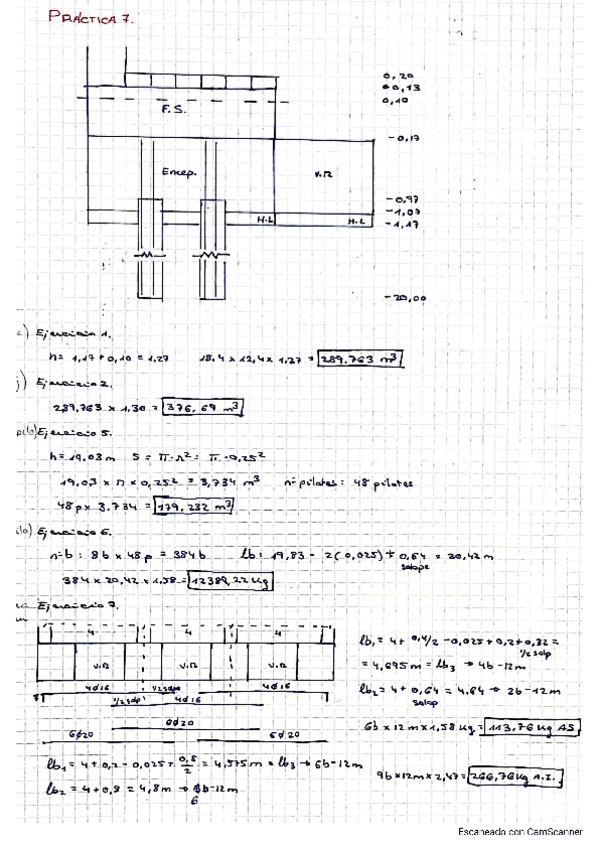 PRÁCTICA 7.
0,20
0,13
0,10
F.S.
-0,17
Encep.
V.R
-0,97
-1,07
-1,17
H.L
H.L
-20,00
Ejercicio 1.
h= 1,17+0,10 = 1,27 18,4 x 12,4 x 1,27 = 289,763 m³
Ejercicio 2.
289,763 x 1,30 = 376,69 m³
Ejercicio 5.
h= 19,03 m S = π·r² = π·0,25²
19,03 x π x 0,25² = 3,734 m³ nº pilotes: 48 pilotes
48 p x 3,734 = 179,232 m³
Ejercicio 6.
nºb: 8b x 48p = 384b lb: 19,83 - 2(0,025) + 0,64 = 20,42 m
solape
384 x 20,42 x 1,58 = 12389,22 Kg
Ejercicio 7.
4 4 4
V.R V.R V.R
4Ø16 1/2 solp 4Ø16
1/2 solp 4Ø16
6Ø20
6Ø20 6Ø20
lb₁ = 4 + 0,4/2 - 0,025 + 0,2 + 0,32 =
1/2 solp
= 4,695 m = lb₃ → 4b-12m
lb₂ = 4 + 0,64 = 4,64 → 2b-12m
solap
6b x 12m x 1,58 Kg = 113,76 Kg A.S
lb₁ = 4 + 0,2 - 0,025 + 0,8/2 = 4,575 m = lb₃ → 6b-12m
lb₂ = 4 + 0,8 = 4,8 m → b-12m
6
9b x 12m x 2,47 = 266,76 Kg A.I.
Escaneado con CamScanner